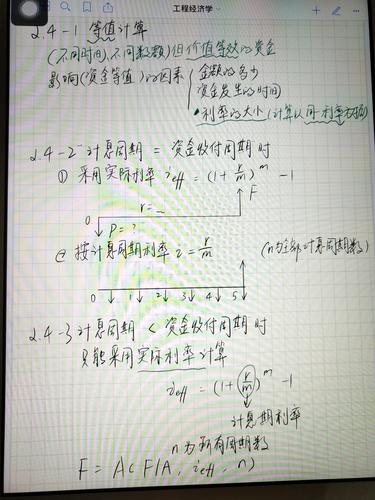 工程经济学
2.4-1 等值计算
(不同时间,不同数额)但价值等效的资金
影响(资金等值)的因素 { 金额的多少
资金发生的时间
·利率的大小(计算以同一利率为
2.4-2 计息周期 = 资金收付周期时
① 采用实际利率 ieff = (1+r/m)^m -1
F
r=
0
P=?
② 按计息周期利率 i=r/m (n为全部计息周期数)
0 1 2 3 4 5
2.4-3 计息周期 < 资金收付周期时
只能采用实际利率计算
ieff = (1+r/m)^m -1
计息期利率
n为所有周期数
F = A(F/A, ieff, n)